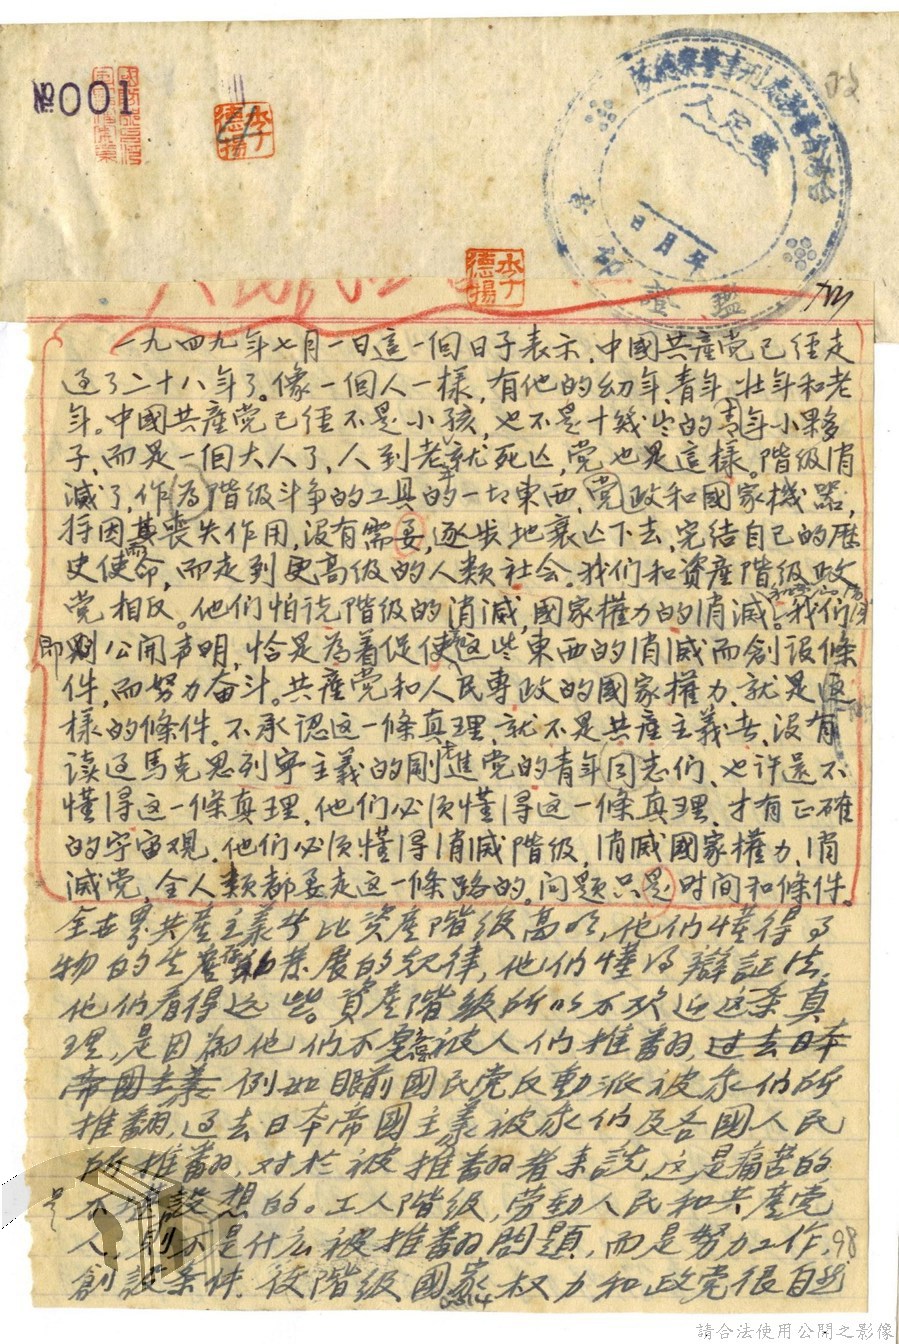 №001
李德揚
李德揚
人定鑑
年月日
鑑
一九四九年七月一日這一個日子表示,中國共產党已经走
过了二十八年了。像一個人一樣,有他的幼年、青年、壮年和老
年。中國共產党已经不是小孩,也不是十幾岁的青年小夥
子,而是一個大人了,人到老年就死亡,党也是這樣。階級消
滅了,作為階級斗争的工具的一切東西,党政和國家機器,
将因其喪失作用,没有需要,逐步地衰亡下去,完结自己的歷
史使命,而走到更高级的人類社会。我们和資產階級政
党相反。他们怕说階級的消滅,國家權力的消滅。我们
则公開声明,恰是為着促使這些東西的消滅而創設條
件,而努力奋斗。共產党和人民專政的國家權力,就是這
樣的條件。不承認这一條真理,就不是共產主義者、没有
读过馬克思列宁主義的剛進党的青年同志们,也许还不
懂得这一條真理,他们必须懂得这一條真理,才有正確
的宇宙观,他们必须懂得消滅階級,消滅國家權力,消
滅党,全人類都要走这一條路的。问题只是时间和條件。
全世界共產主義者比資產階級高明,他们懂得事
物的生產發展的規律,他们懂得辯証法,
他们看得远些。資產階級所以不欢迎这条真
理,是因為他们不愿意被人们推翻,过去日本
帝國主義 例如眼前國民党反動派被我们所
推翻,过去日本帝國主義被我们及各國人民
所推翻,对於被推翻者来說,这是痛苦的
不堪設想的。工人階級,劳動人民和共產党
人,則不是什么被推翻的問題,而是努力工作,
創設条件,使階級,國家权力和政党很自然
98
請合法使用公開之影像